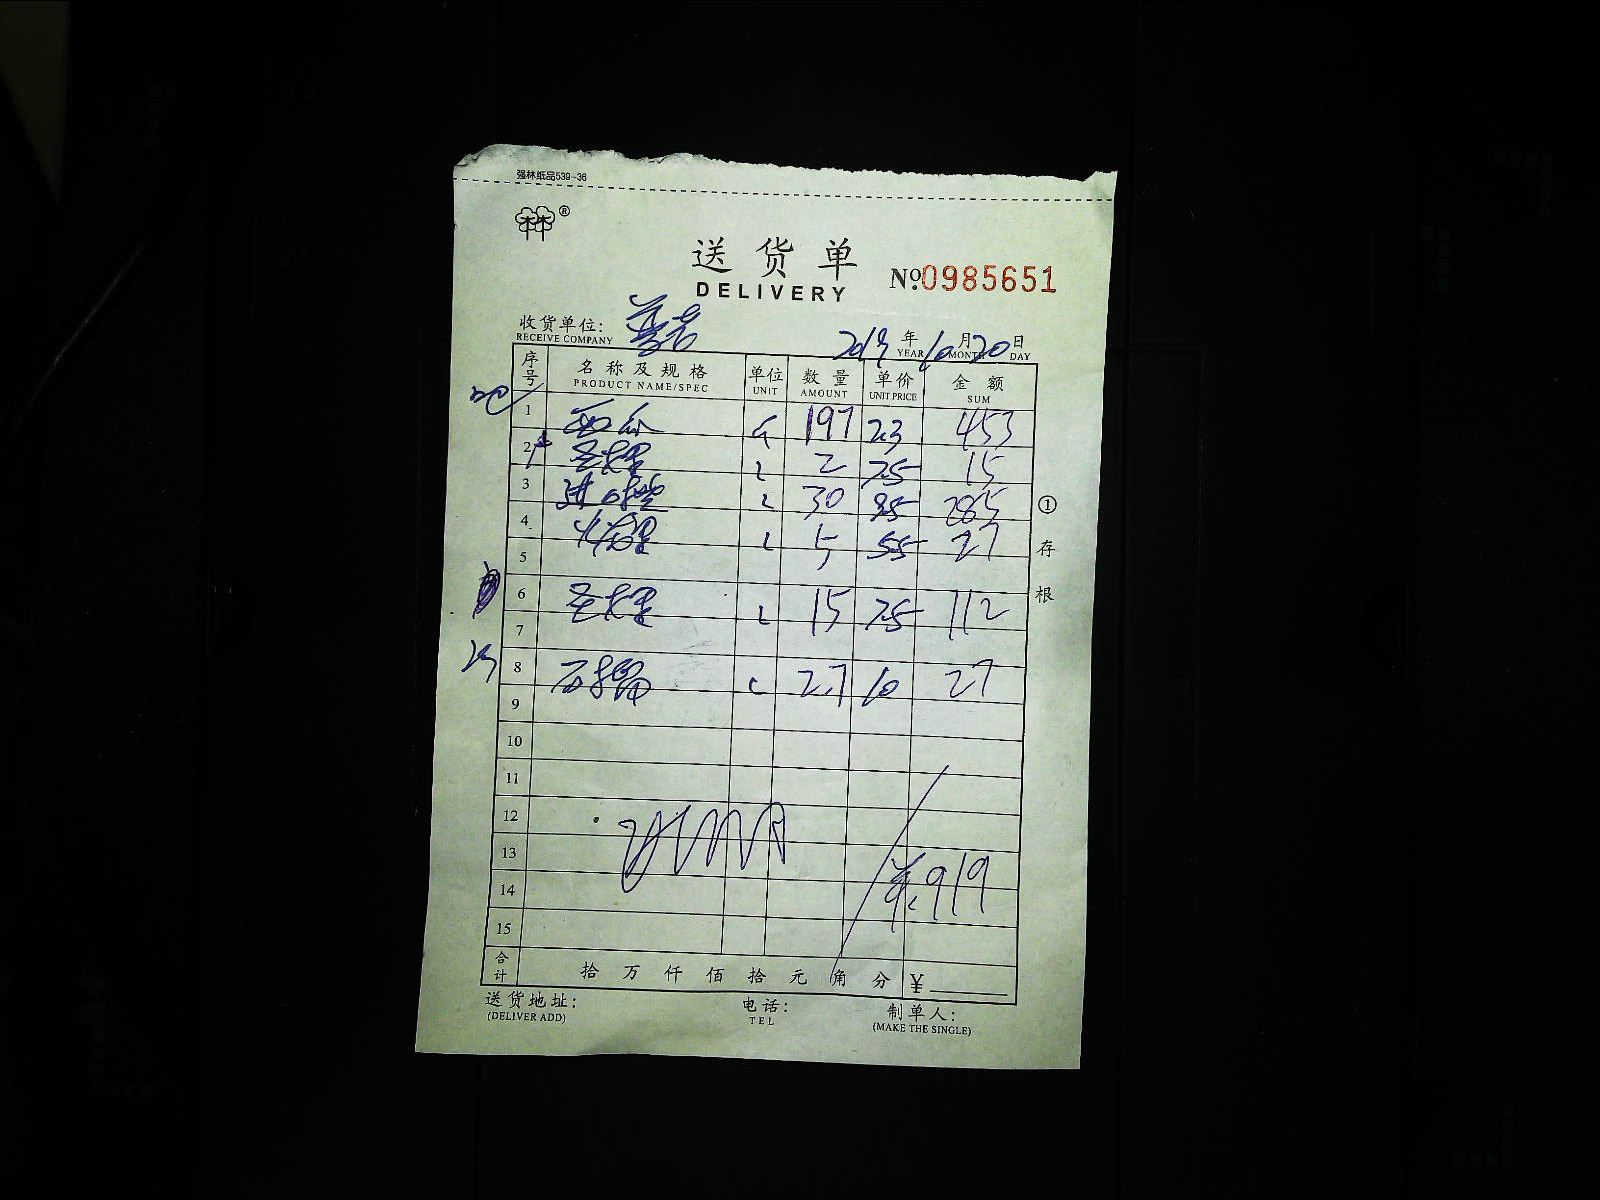 强林纸品539-36
林®
送货单
DELIVERY
№:0985651
收货单位:
RECEIVE COMPANY
2019年10月20日
YEAR MONTH DAY
序号 名称及规格 单位 数量 单价 金额
PRODUCT NAME/SPEC UNIT AMOUNT UNIT PRICE SUM
1 西瓜 197 2.3 453
2 2 7.5 15
3 进口 30 9.5 285
4 5 5.5 27
5
6 15 7.5 112
7
8 石榴 2.7 10 27
9
10
11
12
13
¥:919
14
15
合计 拾万仟佰拾元角分 ¥
①存根
送货地址:
(DELIVER ADD)
电话:
TEL
制单人:
(MAKE THE SINGLE)